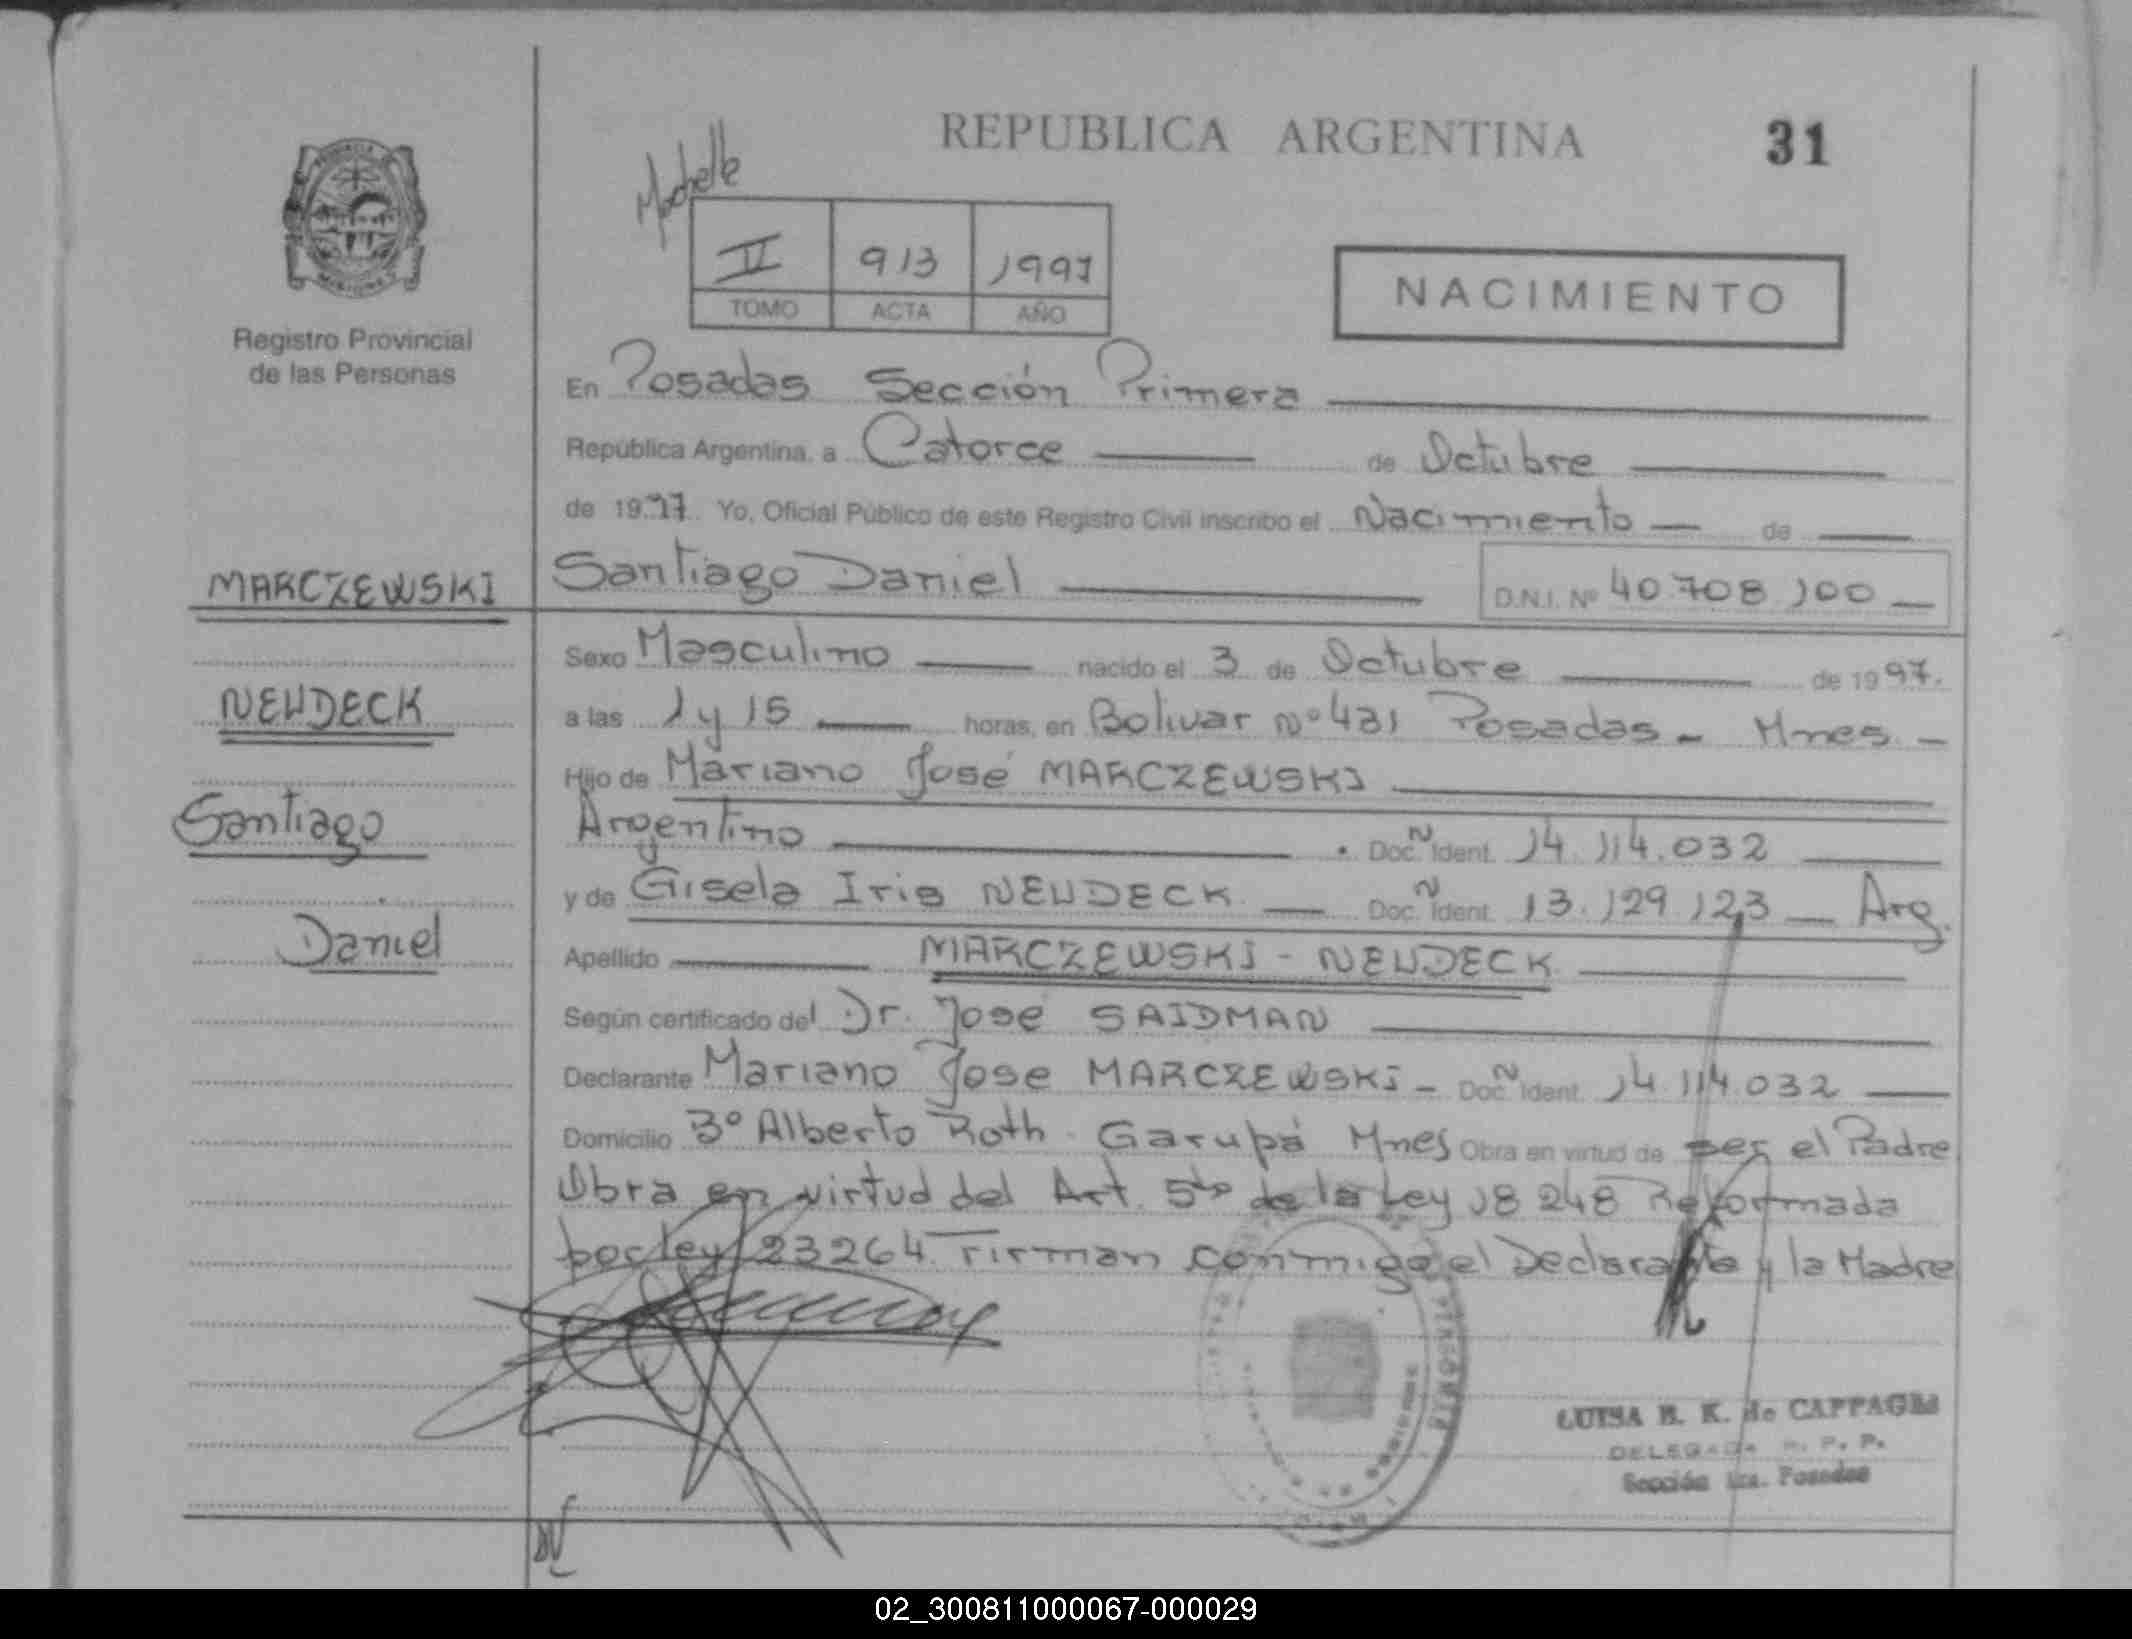 REPUBLICA ARGENTINA
31
II 913 1997
TOMO ACTA AÑO
NACIMIENTO
Registro Provincial
de las Personas
En Posadas Sección Primera
República Argentina, a Catorce de Octubre
de 1997 Yo, Oficial Público de este Registro Civil inscribo el Nacimiento de
MARCZEWSKI
Santiago Daniel
D.N.I. Nº 40.708.100
Sexo Masculino nacido el 3 de Octubre de 1997.
NEUDECK
a las 1 y 15 horas, en Bolivar nº 431 Posadas - Mnes -
Hijo de Mariano José MARCZEWSKI
Santiago
Argentino Doc. Ident. 14.114.032
y de Gisela Iris NEUDECK Doc. Ident. 13.129.123 Arg.
Daniel
Apellido MARCZEWSKI - NEUDECK
Según certificado del Dr. José SAIDMAN
Declarante Mariano Jose MARCZEWSKI - Doc. Ident. 14.114.032
Domicilio 3º Alberto Roth - Garupá Mnes Obra en virtud de ser el Padre
Obra en virtud del Art. 5to de la Ley 18248 Reformada
por Ley 23264. Firman conmigo el Declarante y la Madre
LUISA B. K. de CAPPAGLI
DELEGADA R. P. P.
Sección 1ra. Posadas
02_300811000067-000029